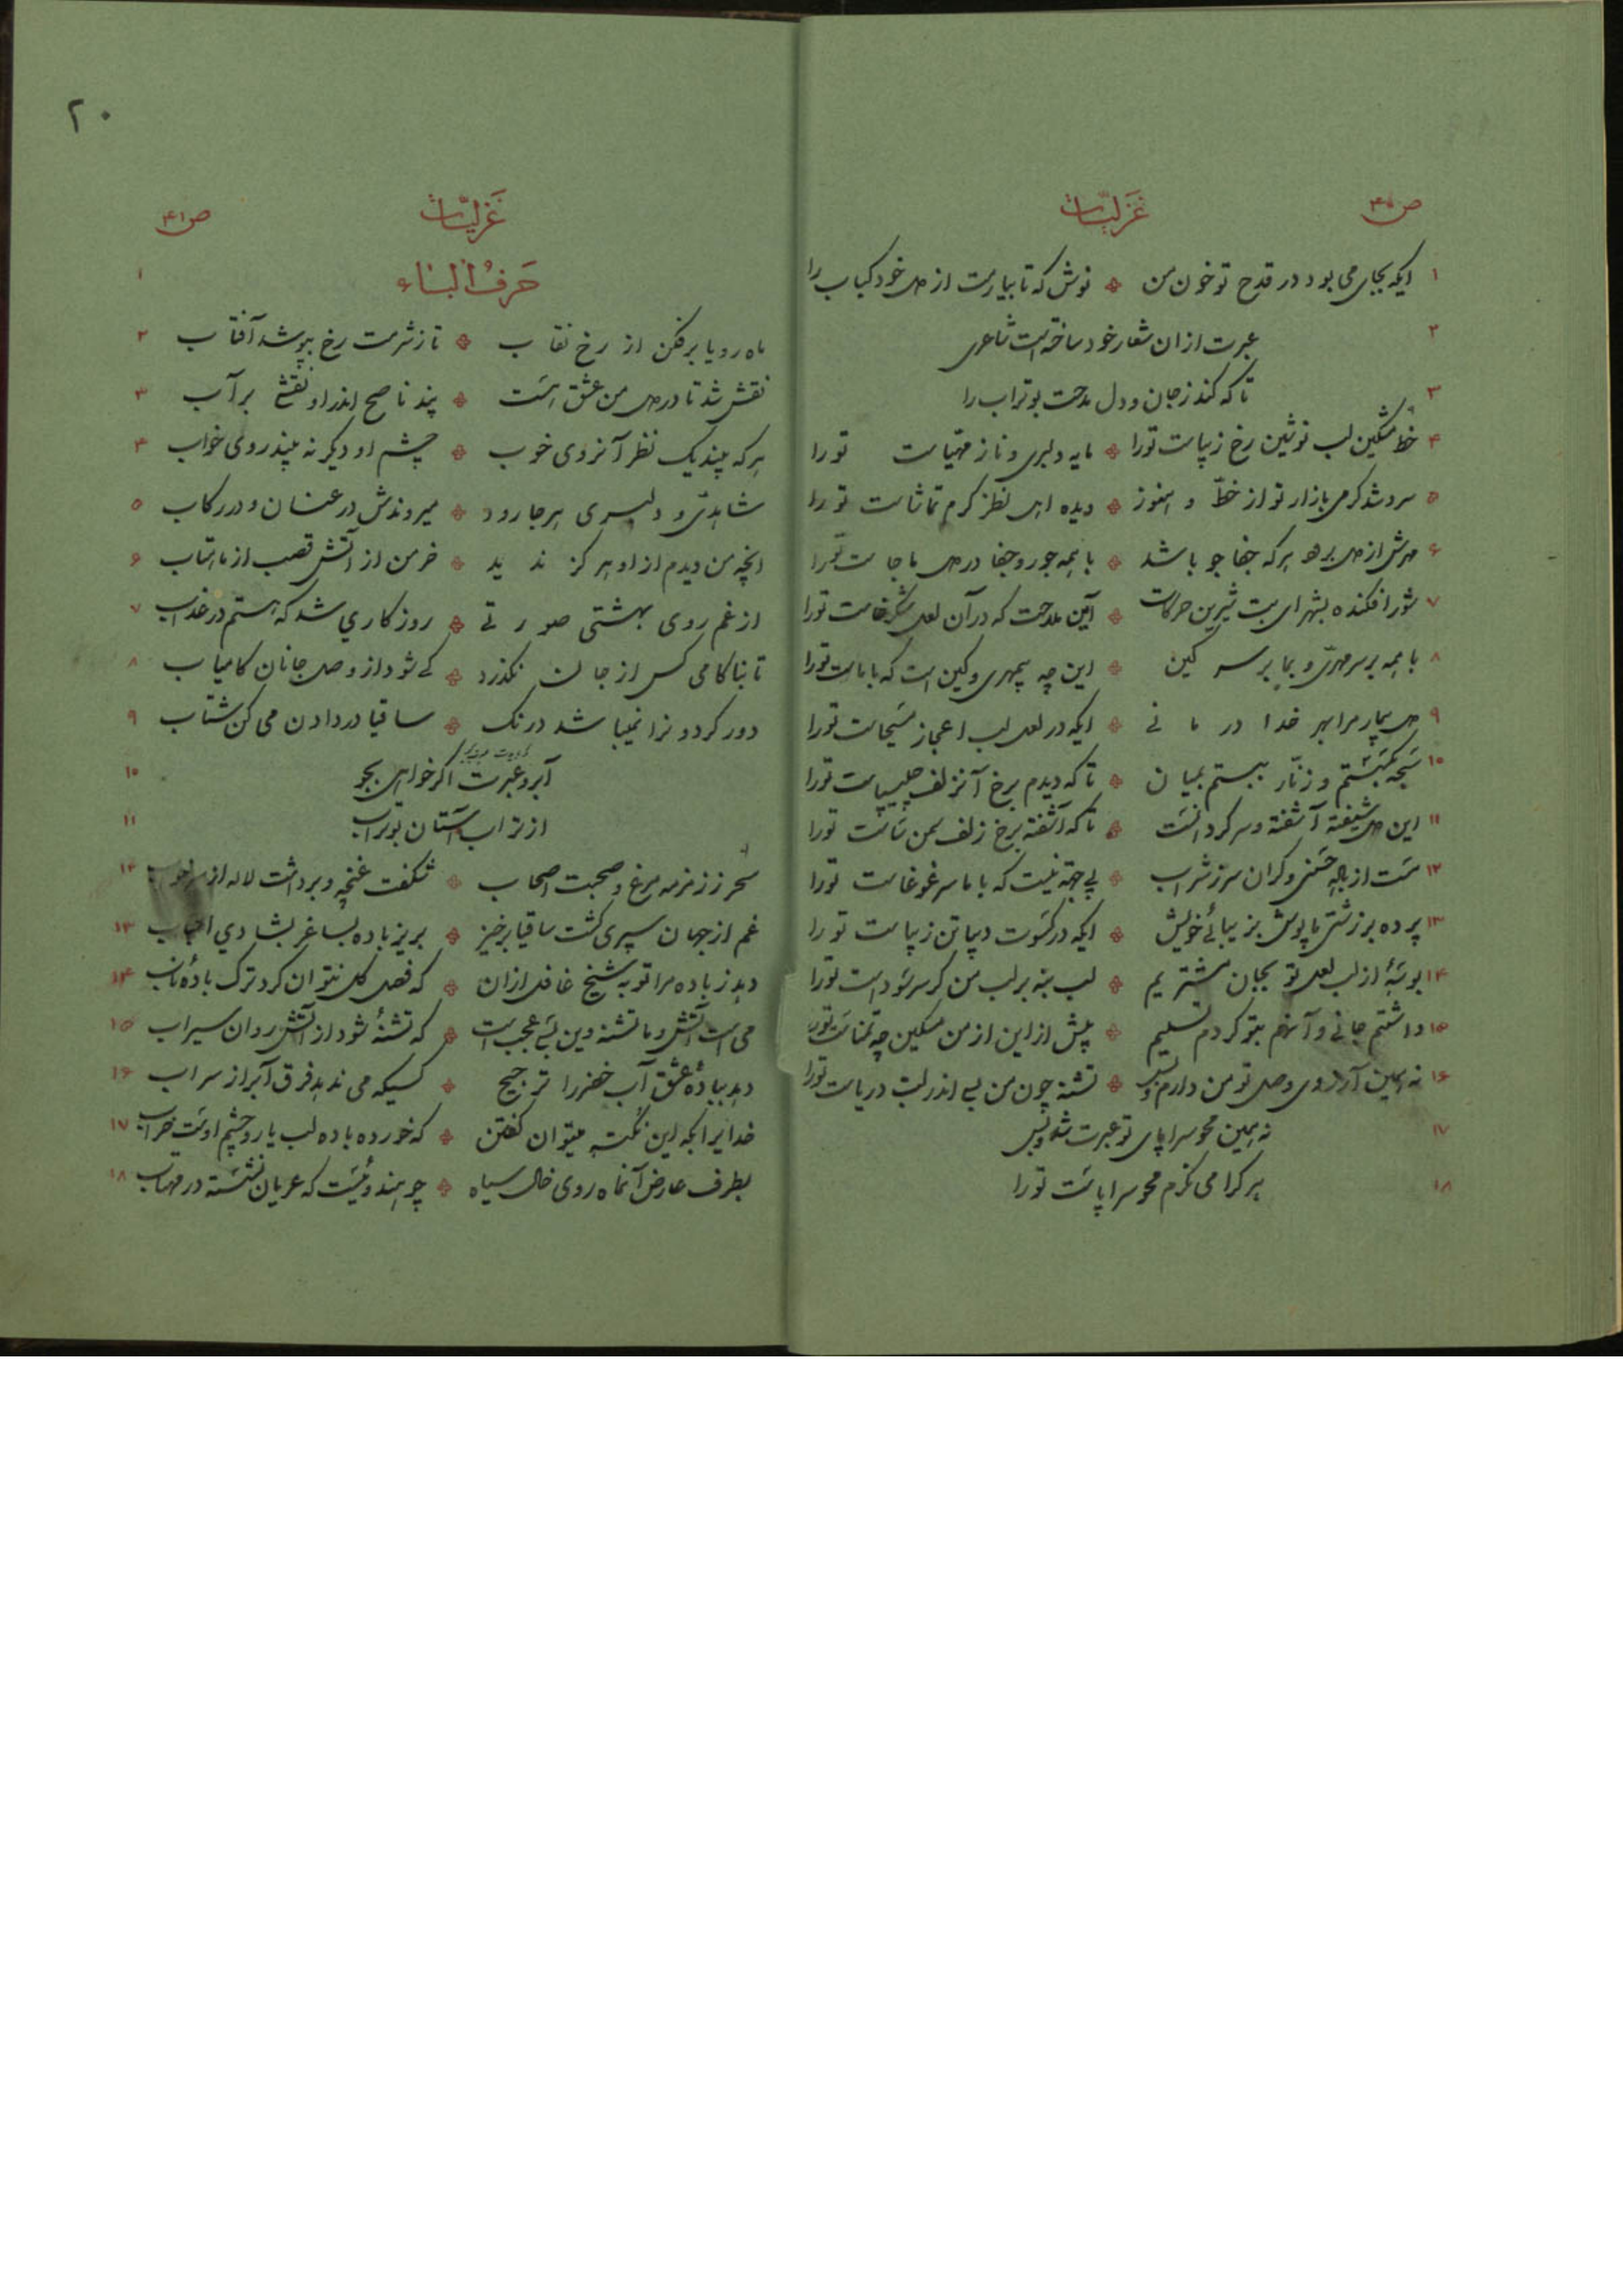 ص۴۰ غزلیّات
۱ ایکه بجای می بود در قدح تو خون من نوش که تا بیارمت از دل خود کباب را
۲ عبرت ازان شعار خود ساخته است شاعری
۳ تا که کند ز جان و دل مدحت بوتراب را
۴ خط مشکین لب نوشین رخ زیباست تورا مایه دلبری و ناز مهیّاست تورا
۵ سرد شد گرمی بازار تو از خطّ و هنوز دیده اهل نظر گرم تماشاست تورا
۶ مهرش از دل برود هرکه جفا جو باشد با همه جور و جفا در دل ما جاست تورا
۷ شور افکنده بشهر ای بت شیرین حرکات این ملاحت که در آن لعل شکرخاست تورا
۸ با همه بر سر مهریّ و بما بر سر کین این چه بیمهری و کین است که با ماست تورا
۹ دل بیمار مرا بهر خدا درمانی ایکه در لعل لب اعجاز مسیحاست تورا
۱۰ سبحه بگسستم و زنّار ببستم بمیان تا که دیدم برخ آنزلف چلیپاست تورا
۱۱ این دل شیفته آشفته و سرگردانست تا که آشفته برخ زلف سمن ساست تورا
۱۲ مست از باده حسنی و گران سر ز شراب بی جهة نیست که با ما سر غوغاست تورا
۱۳ پرده بر زشتی ما پوش بزیبائی خویش ایکه در کسوت دیبا تن زیباست تورا
۱۴ بوسهٔ از لب لعل تو بجان مشتریم لب بنه بر لب من گر سر سوداست تورا
۱۵ داشتم جانی و آنهم بتو کردم تسلیم بیش از این از من مسکین چه تمنّاست تورا
۱۶ نه همین آرزوی وصل تو من دارم و بس تشنه چون من بسی اندر لب دریاست تورا
۱۷ نه همین محو سراپای تو عبرت شد و بس
۱۸ هر کرا می نگرم محو سراپاست تورا
۲۰
غزلیّات ص۴۱
حرفُ البَاء ۱
ماه رویا برفکن از رخ نقاب تا ز شرمت رخ بپوشد آفتاب ۲
نقش شد تا در دل من عشق است پند ناصح اندر او نقش بر آب ۳
هرکه بیند یک نظر آنروی خوب چشم او دیگر نه بیند روی خواب ۴
شاهدیّ و دلبری هر جا رود میروندش در عنان و در رکاب ۵
انچه من دیدم از او هرگز ندید خرمن از آتش قصب از ماهتاب ۶
از غم روی بهشتی صورتی روزگاری شد که هستم در عذاب ۷
تا بناکامی کس از جان نگذرد کی شود از وصل جانان کامیاب ۸
دور گردون را نمیباشد درنگ ساقیا در دادن می کن شتاب ۹
آبرو عبرت اگر خواهی بجو ۱۰
از تراب آستان بوتراب ۱۱
سحر ز زمزمه مرغ و صحبت اصحاب شکفت غنچه و برداشت لاله از ۱۲
غم از جهان سپری گشت ساقیا برخیز بریز باده بساغر بشادی احباب ۱۳
دهد ز باده مرا توبه شیخ غافل ازان که فصل گل نتوان کرد ترک بادهٔ ناب ۱۴
می است آتش و ما تشنه وین بسی عجب است که تشنهٔ شود از آتش روان سیراب ۱۵
دهد ببادهٔ عشق آب خضر را ترجیح کسیکه می ندهد فرق آبرا از سراب ۱۶
خدایرا بکه این نکته میتوان گفتن که خورده باده لب یار و چشم اوست خراب ۱۷
بطرف عارض آنماه روی خال سیاه چو هندوئیست که عریان نشسته در مهتاب ۱۸